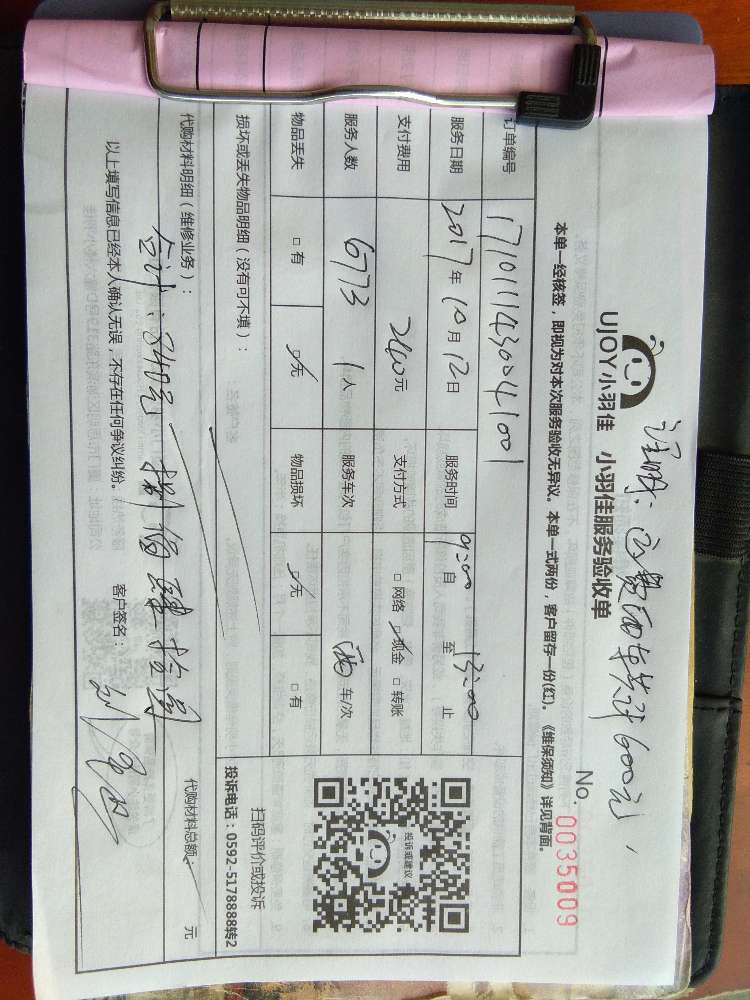 注明：运费两车共计600元，
UJOY小羽佳 小羽佳服务验收单
No. 0035009
本单一经核签，即视为对本次服务验收无异议。本单一式两份，客户留存一份(红)。《维保须知》详见背面。
订单编号 1710111430041001
服务日期 2017年10月12日 服务时间 9:00 自 至 13:00 止
支付费用 240元 支付方式 □网络 ☑现金 □转账
服务人数 6773 1人 服务车次 两 车/次
物品丢失 □有 ☑无 物品损坏 ☑无 □有
损坏或丢失物品明细（没有可不填）：
投诉或建议
扫码评价或投诉
投诉电话：0592-5178888转2
代购材料明细（维修业务）： 代购材料总额： 元
合计：840元
以上填写信息已经本人确认无误，不存在任何争议纠纷。 客户签名：